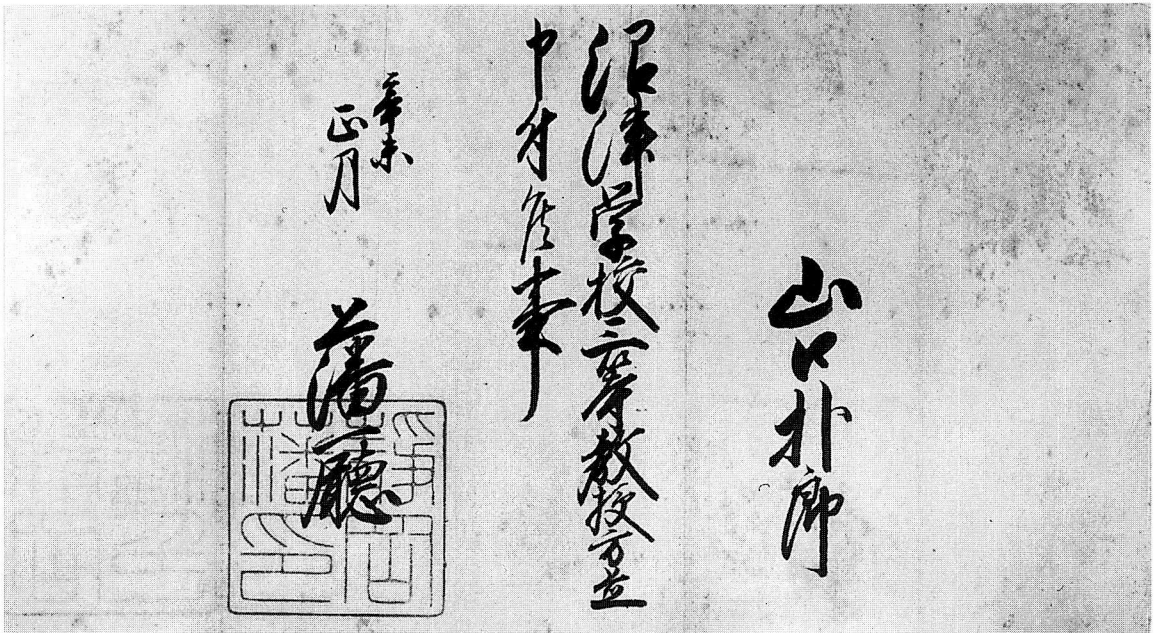 山口朴郎
沼津学校三等教授方並
申付候事
辛未
正月
藩廳
静岡藩印